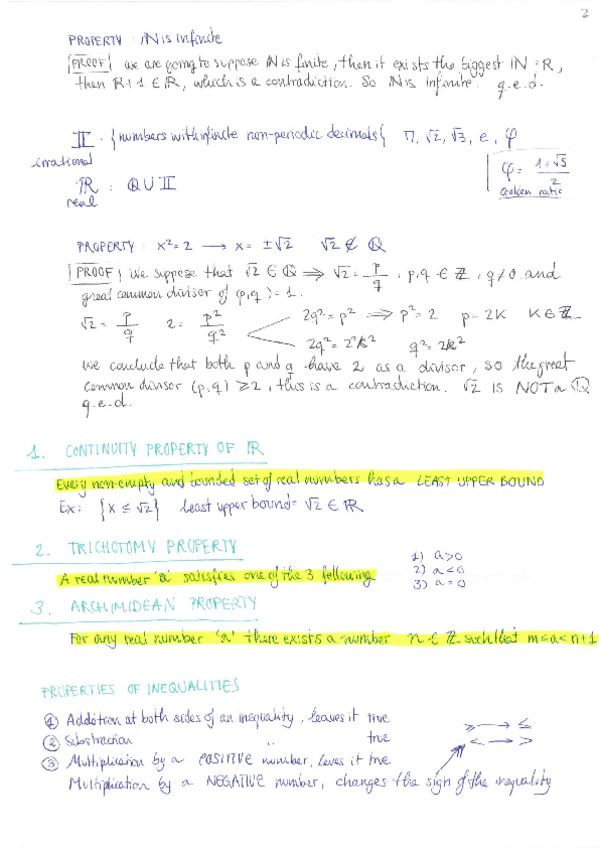 2
PROPERTY : ℕ is infinite
PROOF we are going to suppose ℕ is finite, then it exists the biggest ℕ : R,
then R+1 ∈ ℝ, which is a contradiction. So ℕ is infinite. q.e.d.
𝕀 · {numbers with infinite non-periodic decimals{ π, √2, √3, e, φ
irrational
φ = 1+√5 / 2
Golden ratio
ℝ : ℚ ∪ 𝕀
real
PROPERTY : x² = 2 → x = ±√2 √2 ∉ ℚ
PROOF We suppose that √2 ∈ ℚ ⇒ √2 = p/q : p,q ∈ ℤ, q≠0 and
great common divisor of (p,q) = 1.
√2 = p/q 2 = p²/q² 2q² = p² ⇒ p² = 2 p = 2K K ∈ ℤ
2q² = 2²k² q² = 2k²
we conclude that both p and q have 2 as a divisor, so the great
common divisor (p,q) ≥ 2, this is a contradiction. √2 IS NOT a ℚ
q.e.d.
1. CONTINUITY PROPERTY OF ℝ
Every non-empty and bounded set of real numbers has a LEAST UPPER BOUND
Ex: {x ≤ √2} least upper bound = √2 ∈ ℝ
2. TRICHOTOMY PROPERTY
A real number 'a' satisfies one of the 3 following
1) a>0
2) a<0
3) a=0
3. ARCHIMIDEAN PROPERTY
For any real number 'a' there exists a number n ∈ ℤ such that m≤a<n+1
PROPERTIES OF INEQUALITIES
① Addition at both sides of an inequality, leaves it true
② Substraction ,, true
③ Multiplication by a POSITIVE number, leves it true
≥ → ≤
< → >
Multiplication by a NEGATIVE number, changes the sign of the inequality